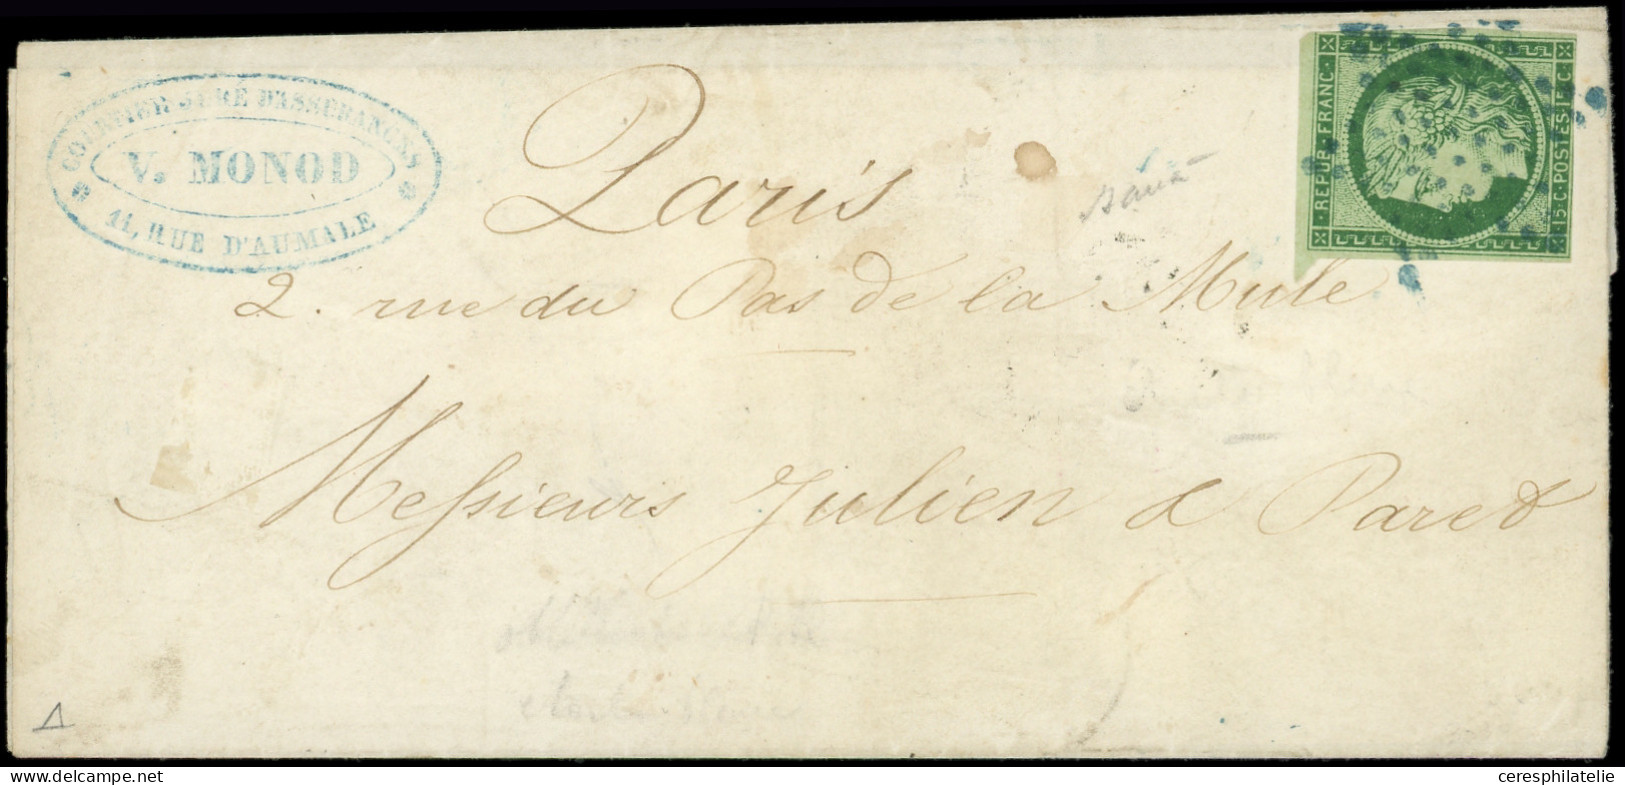 COURTIER JURÉ D'ASSURANCES
V. MONOD
11, RUE D'AUMALE
REPUB. FRANC.
15 C. POSTES 15 C.
Paris
2. rue du Pas de la Mule
Messieurs Julien & Paret
delcampe.net
ceresphilatelie